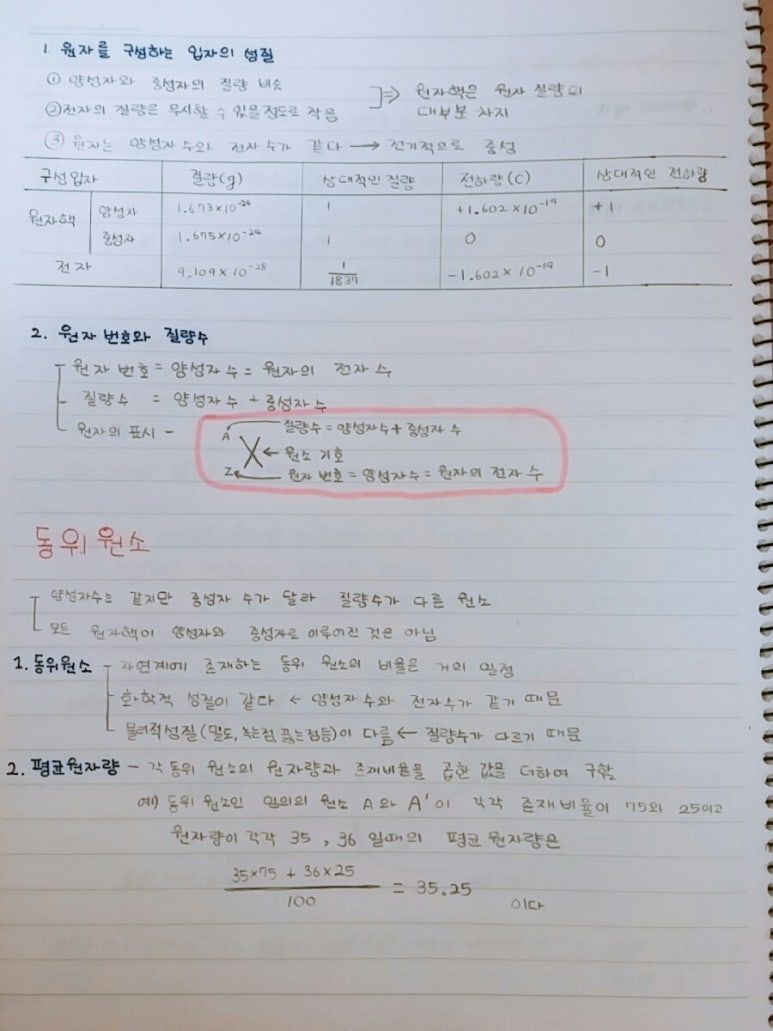 1. 원자를 구성하는 입자의 성질
① 양성자와 중성자의 질량 비슷
②전자의 질량은 무시할 수 있을정도로 작음
⇒ 원자핵은 원자 질량의
대부분 차지
③ 원자는 양성자수와 전자 수가 같다 → 전기적으로 중성
구성입자 질량(g) 상대적인 질량 전하량(C) 상대적인 전하량
원자핵 양성자 1.673×10⁻²⁴ 1 +1.602×10⁻¹⁹ +1
중성자 1.675×10⁻²⁴ 1 0 0
전자 9.109×10⁻²⁸ 1/1837 -1.602×10⁻¹⁹ -1
2. 원자 번호와 질량수
원자 번호 = 양성자수 = 원자의 전자 수
질량수 = 양성자수 + 중성자수
원자의 표시 -
A 질량수 = 양성자수 + 중성자 수
X ← 원소 기호
Z 원자 번호 = 양성자수 = 원자의 전자 수
동위 원소
양성자수는 같지만 중성자 수가 달라 질량수가 다른 원소
모든 원자핵이 양성자와 중성자로 이루어진 것은 아님
1. 동위원소 자연계에 존재하는 동위 원소의 비율은 거의 일정
화학적 성질이 같다 ← 양성자수와 전자수가 같기 때문
물리적성질(밀도, 녹는점, 끓는점등)이 다름 ← 질량수가 다르기 때문
2. 평균원자량 - 각 동위 원소의 원자량과 존재비율을 곱한 값을 더하여 구함
예) 동위 원소인 임의의 원소 A와 A'이 각각 존재비율이 75와 25이고
원자량이 각각 35, 36 일때의 평균 원자량은
35×75 + 36×25
/100 = 35.25 이다